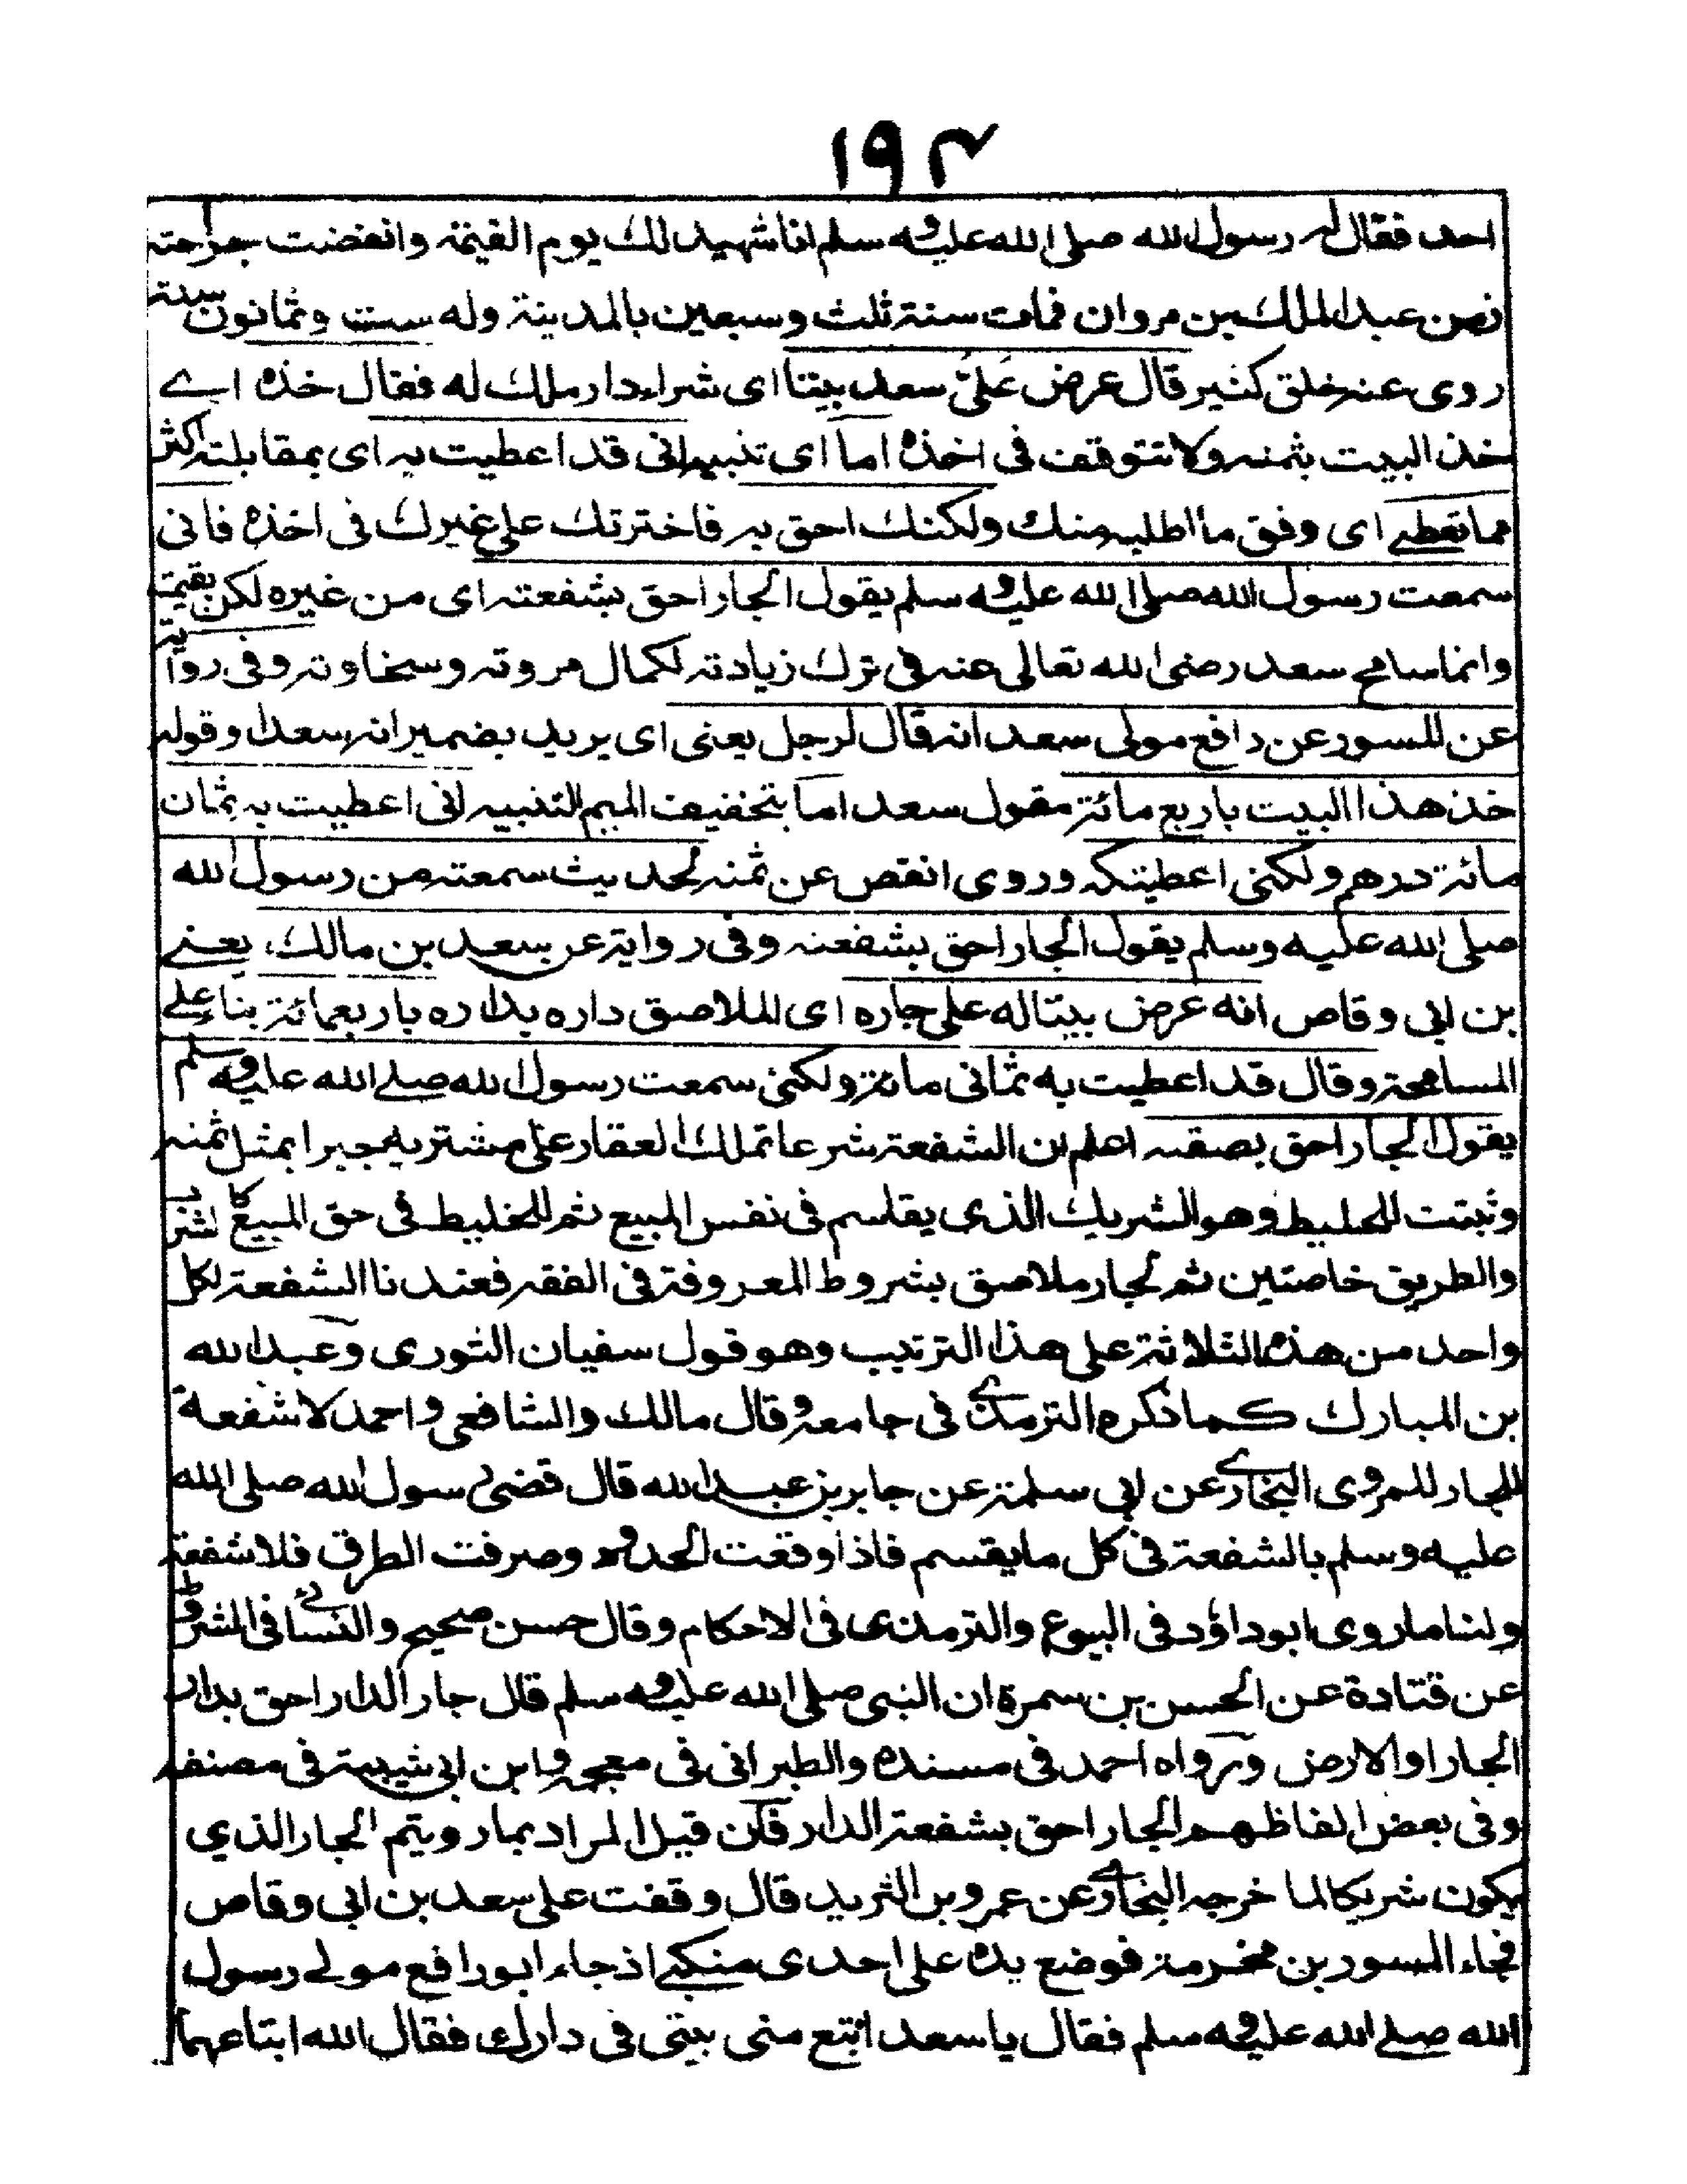 ۱۹۴
احد فقال له رسول الله صلى الله عليه وسلم انا شهيد لك يوم القيمة وانتقضت جراحته
زمن عبد الملك بن مروان فمات سنة ثلث وسبعين بالمدينة وله ست وثمانون سنة
روى عنه خلق كثير قال عرض عَلَىَّ سعد بيتا اى شراء دار ملك له فقال خذه اے
خذ البيت بثمنه ولا تتوقف فى اخذه اما اى تنبيه انى قد اعطيت به اى بمقابلته اكثر
مما تعطے اى وفق ما اطلبه منك ولكنك احق به فاخترتك على غيرك فى اخذه فانى
سمعت رسول الله صلى الله عليه وسلم يقول الجار احق بشفعته اى من غيره لكن بقيمته
وانما سامح سعد رضى الله تعالى عنه فى ترك زيادته لكمال مروته وسخاوته وفى رواية
عن المسور عن رافع مولى سعد انه قال لرجل يعنى اى يريد بضمير انه سعدا وقوله
خذ هذا البيت باربع مائة مقول سعد اما بتخفيف الميم للتنبيه انى اعطيت به ثمان
مائة درهم ولكنى اعطيتكه وروى انقص عن ثمنه لحديث سمعته من رسول الله
صلى الله عليه وسلم يقول الجار احق بشفعته وفى رواية عن سعد بن مالك يعنے
بن ابى وقاص انه عرض بيتا له على جاره اى الملاصق داره بداره باربعمائة بناء علے
المسامحة وقال قد اعطيت به ثمانى مائة ولكنى سمعت رسول الله صلے الله عليه وسلم
يقول الجار احق بصقبه اعلم ان الشفعة شرعا تملك العقار على مشتريه جبرا بمثل ثمنه
وثبتت للخليط وهو الشريك الذى يقاسم فى نفس المبيع ثم للخليط فى حق المبيع كالشرب
والطريق خاصتين ثم لجار ملاصق بشروط المعروفة فى الفقه فعندنا الشفعة لكل
واحد من هذه الثلاثة على هذا الترتيب وهو قول سفيان الثورى وعبد الله
بن المبارك كما ذكره الترمذے فى جامعه وقال مالك والشافعى واحمد لا شفعة
للجار لما روى البخارے عن ابى سلمة عن جابر بن عبد الله قال قضى رسول الله صلى الله
عليه وسلم بالشفعة فى كل ما يقسم فاذا وقعت الحدود وصرفت الطرق فلا شفعة
ولنا ما روى ابو داؤد فى البيوع والترمذى فى الاحكام وقال حسن صحيح والنسائے فى الشروط
عن قتادة عن الحسن بن سمرة ان النبى صلى الله عليه وسلم قال جار الدار احق بدار
الجار او الارض ورواه احمد فى مسنده والطبرانى فى معجمه وابن ابى شيبة فى مصنفه
وفى بعض الفاظهم الجار احق بشفعة الدار فان قيل المراد بمار ويتم الجار الذي
يكون شريكا لما خرجه البخارے عن عمرو بن الشريد قال وقفت على سعد بن ابى وقاص
فجاء المسور بن مخرمة فوضع يده على احدى منكبے اذ جاء ابو رافع مولے رسول
الله صلے الله عليه وسلم فقال يا سعد ابتع منى بيتى فى دارك فقال الله ابتاعهما